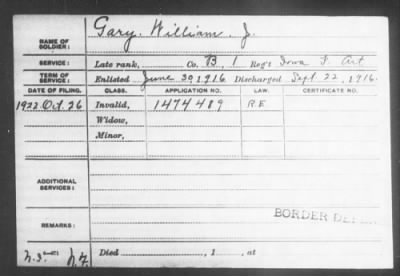 NAME OF SOLDIER: Gary, William J.
SERVICE: Late rank, Co. B, 1 Reg't Iowa F. Art
TERM OF SERVICE: Enlisted June 30, 1916 Discharged Sept 22, 1916.
DATE OF FILING. CLASS. APPLICATION NO. LAW. CERTIFICATE NO.
1922 Oct. 26 Invalid, 1474489 R.E
Widow,
Minor,
ADDITIONAL SERVICES:
BORDER
REMARKS:
Died , 1 , at